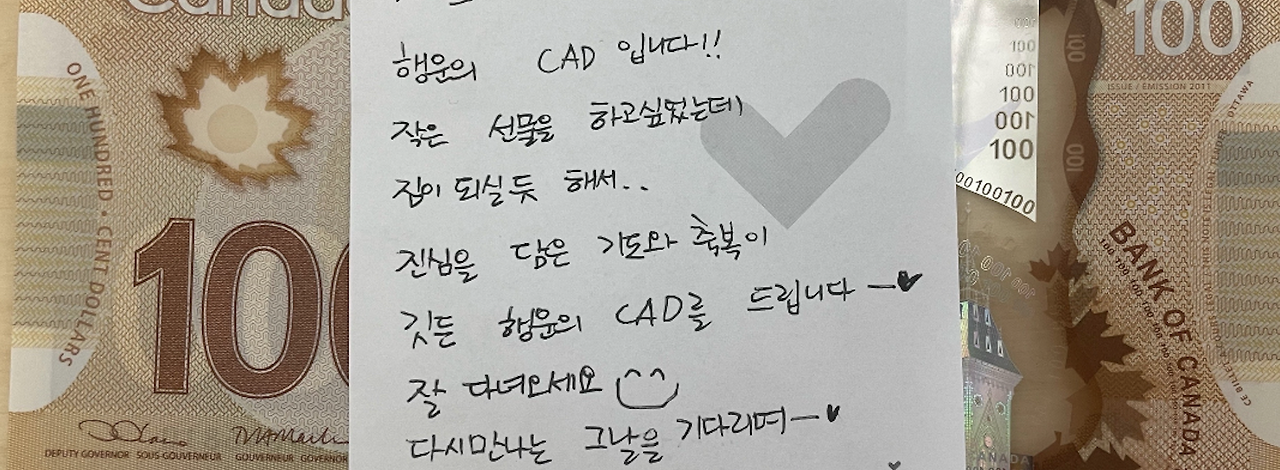 Canada
ONE HUNDRED • CENT DOLLARS
100
DEPUTY GOVERNOR SOUS-GOUVERNEUR GOUVERNEUR GOVERNOR
행운의 CAD 입니다!!
작은 선물을 하고싶었는데
짐이 되실듯 해서..
진심을 담은 기도와 축복이
깃든 행운의 CAD를 드립니다 ―♥
잘 다녀오세요
다시만나는 그날을 기다리며―♥
100
001
100
001
100
00100100
100
ISSUE / ÉMISSION 2011
OTTAWA
001
100
BANK OF CANADA
CANADA